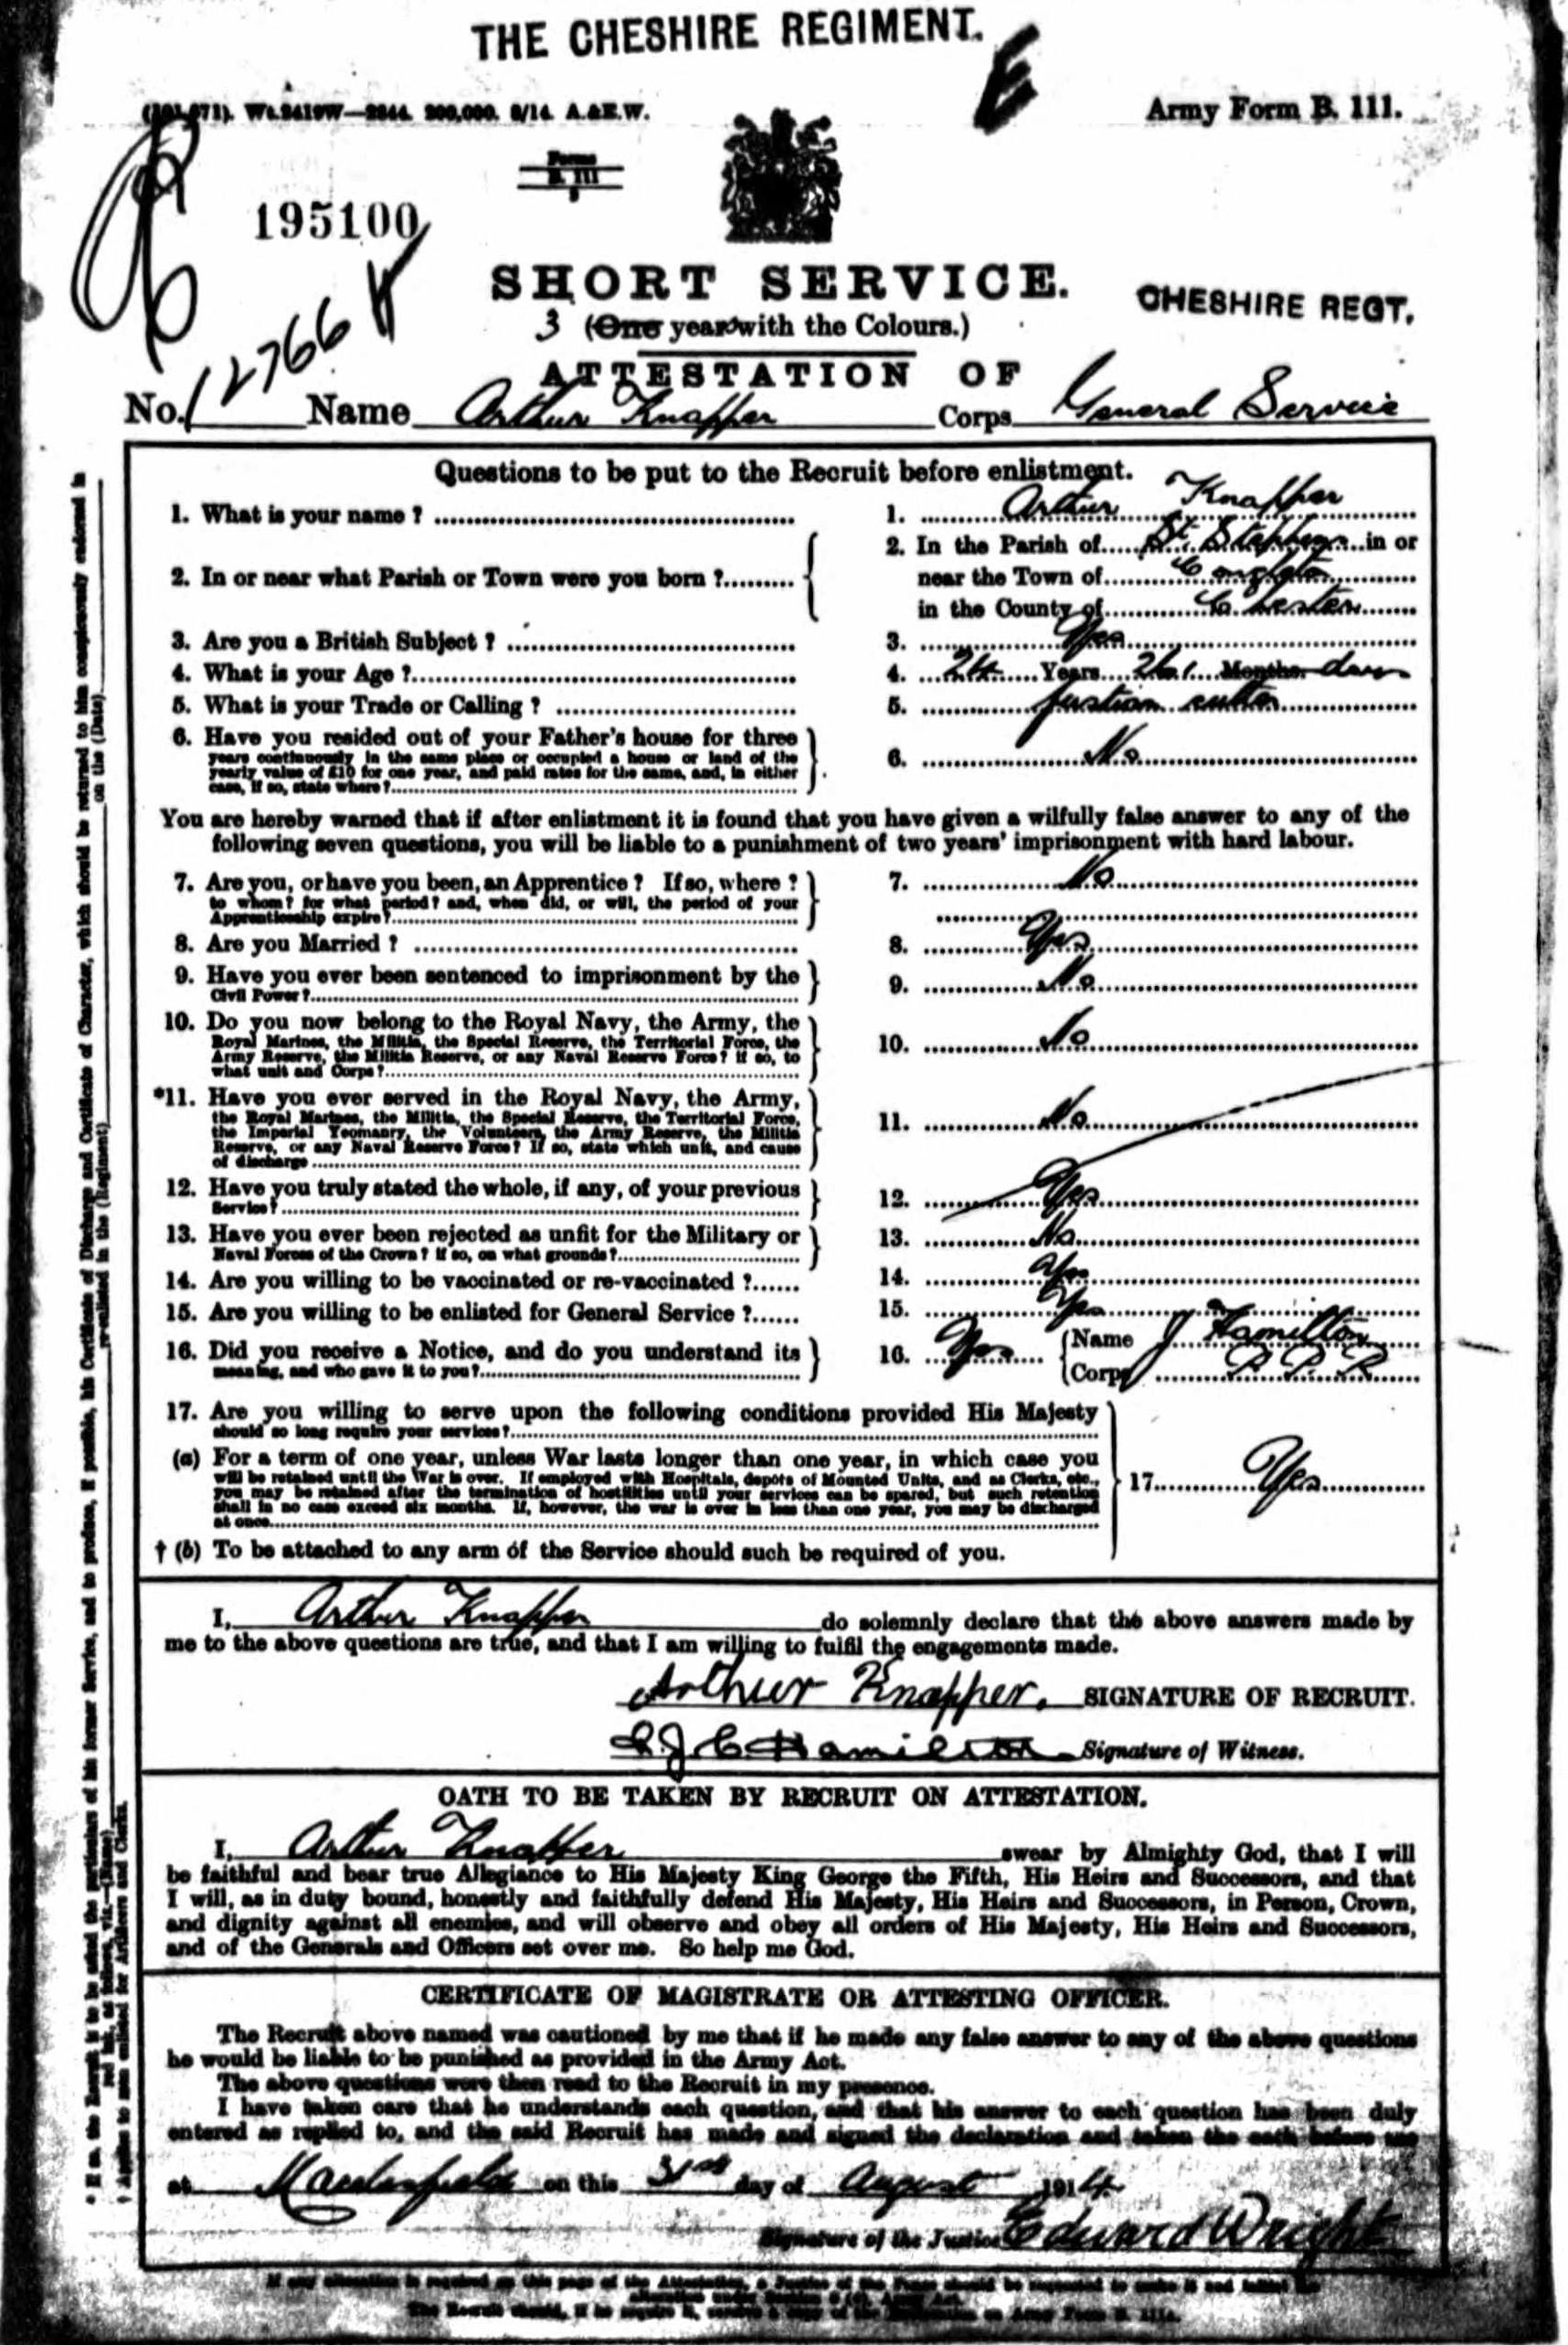 THE CHESHIRE REGIMENT.
E
Wt.2419W—2844. 200,000. 8/14. A.&E.W.
Army Form B. 111.
Forms
B. 111
195100
SHORT SERVICE.
CHESHIRE REGT.
3 (One year with the Colours.)
12766
ATTESTATION OF
No. Name Arthur Knapper Corps General Service
Questions to be put to the Recruit before enlistment.
1. What is your name ? 1. Arthur Knapper
2. In or near what Parish or Town were you born ? 2. In the Parish of St. Stephens in or
near the Town of Congleton
in the County of Chester
3. Are you a British Subject ? 3. Yes
4. What is your Age ? 4. 24 Years 261 Months days
5. What is your Trade or Calling ? 5. fustian cutter
6. Have you resided out of your Father's house for three
years continuously in the same place or occupied a house or land of the
yearly value of £10 for one year, and paid rates for the same, and, in either
case, if so, state where ? 6. No
You are hereby warned that if after enlistment it is found that you have given a wilfully false answer to any of the
following seven questions, you will be liable to a punishment of two years' imprisonment with hard labour.
7. Are you, or have you been, an Apprentice ? If so, where ? 7. No
to whom? for what period? and, when did, or will, the period of your
Apprenticeship expire?
8. Are you Married ? 8. Yes
9. Have you ever been sentenced to imprisonment by the
Civil Power? 9. No
10. Do you now belong to the Royal Navy, the Army, the
Royal Marines, the Militia, the Special Reserve, the Territorial Force, the
Army Reserve, the Militia Reserve, or any Naval Reserve Force? If so, to
what unit and Corps? 10. No
*11. Have you ever served in the Royal Navy, the Army,
the Royal Marines, the Militia, the Special Reserve, the Territorial Force,
the Imperial Yeomanry, the Volunteers, the Army Reserve, the Militia
Reserve, or any Naval Reserve Force? If so, state which unit, and cause
of discharge 11. No
12. Have you truly stated the whole, if any, of your previous
Service? 12. Yes
13. Have you ever been rejected as unfit for the Military or
Naval Forces of the Crown? If so, on what grounds? 13. No
14. Are you willing to be vaccinated or re-vaccinated ? 14. Yes
15. Are you willing to be enlisted for General Service ? 15. Yes
16. Did you receive a Notice, and do you understand its
meaning, and who gave it to you? 16. Yes Name J Hamilton
Corps
17. Are you willing to serve upon the following conditions provided His Majesty
should so long require your services?
(a) For a term of one year, unless War lasts longer than one year, in which case you
will be retained until the War is over. If employed with Hospitals, depots of Mounted Units, and as Clerks, etc.,
you may be retained after the termination of hostilities until your services can be spared, but such retention
shall in no case exceed six months. If, however, the war is over in less than one year, you may be discharged
at once 17. Yes
† (b) To be attached to any arm of the Service should such be required of you.
I, Arthur Knapper do solemnly declare that the above answers made by
me to the above questions are true, and that I am willing to fulfil the engagements made.
Arthur Knapper. SIGNATURE OF RECRUIT.
Hamilton Signature of Witness.
OATH TO BE TAKEN BY RECRUIT ON ATTESTATION.
I, Arthur Knapper swear by Almighty God, that I will
be faithful and bear true Allegiance to His Majesty King George the Fifth, His Heirs and Successors, and that
I will, as in duty bound, honestly and faithfully defend His Majesty, His Heirs and Successors, in Person, Crown,
and dignity against all enemies, and will observe and obey all orders of His Majesty, His Heirs and Successors,
and of the Generals and Officers set over me. So help me God.
CERTIFICATE OF MAGISTRATE OR ATTESTING OFFICER.
The Recruit above named was cautioned by me that if he made any false answer to any of the above questions
he would be liable to be punished as provided in the Army Act.
The above questions were then read to the Recruit in my presence.
I have taken care that he understands each question, and that his answer to each question has been duly
entered as replied to, and the said Recruit has made and signed the declaration and taken the oath before me
at Macclesfield on this 31st day of August 1914
Signature of the Justice Edward Wright